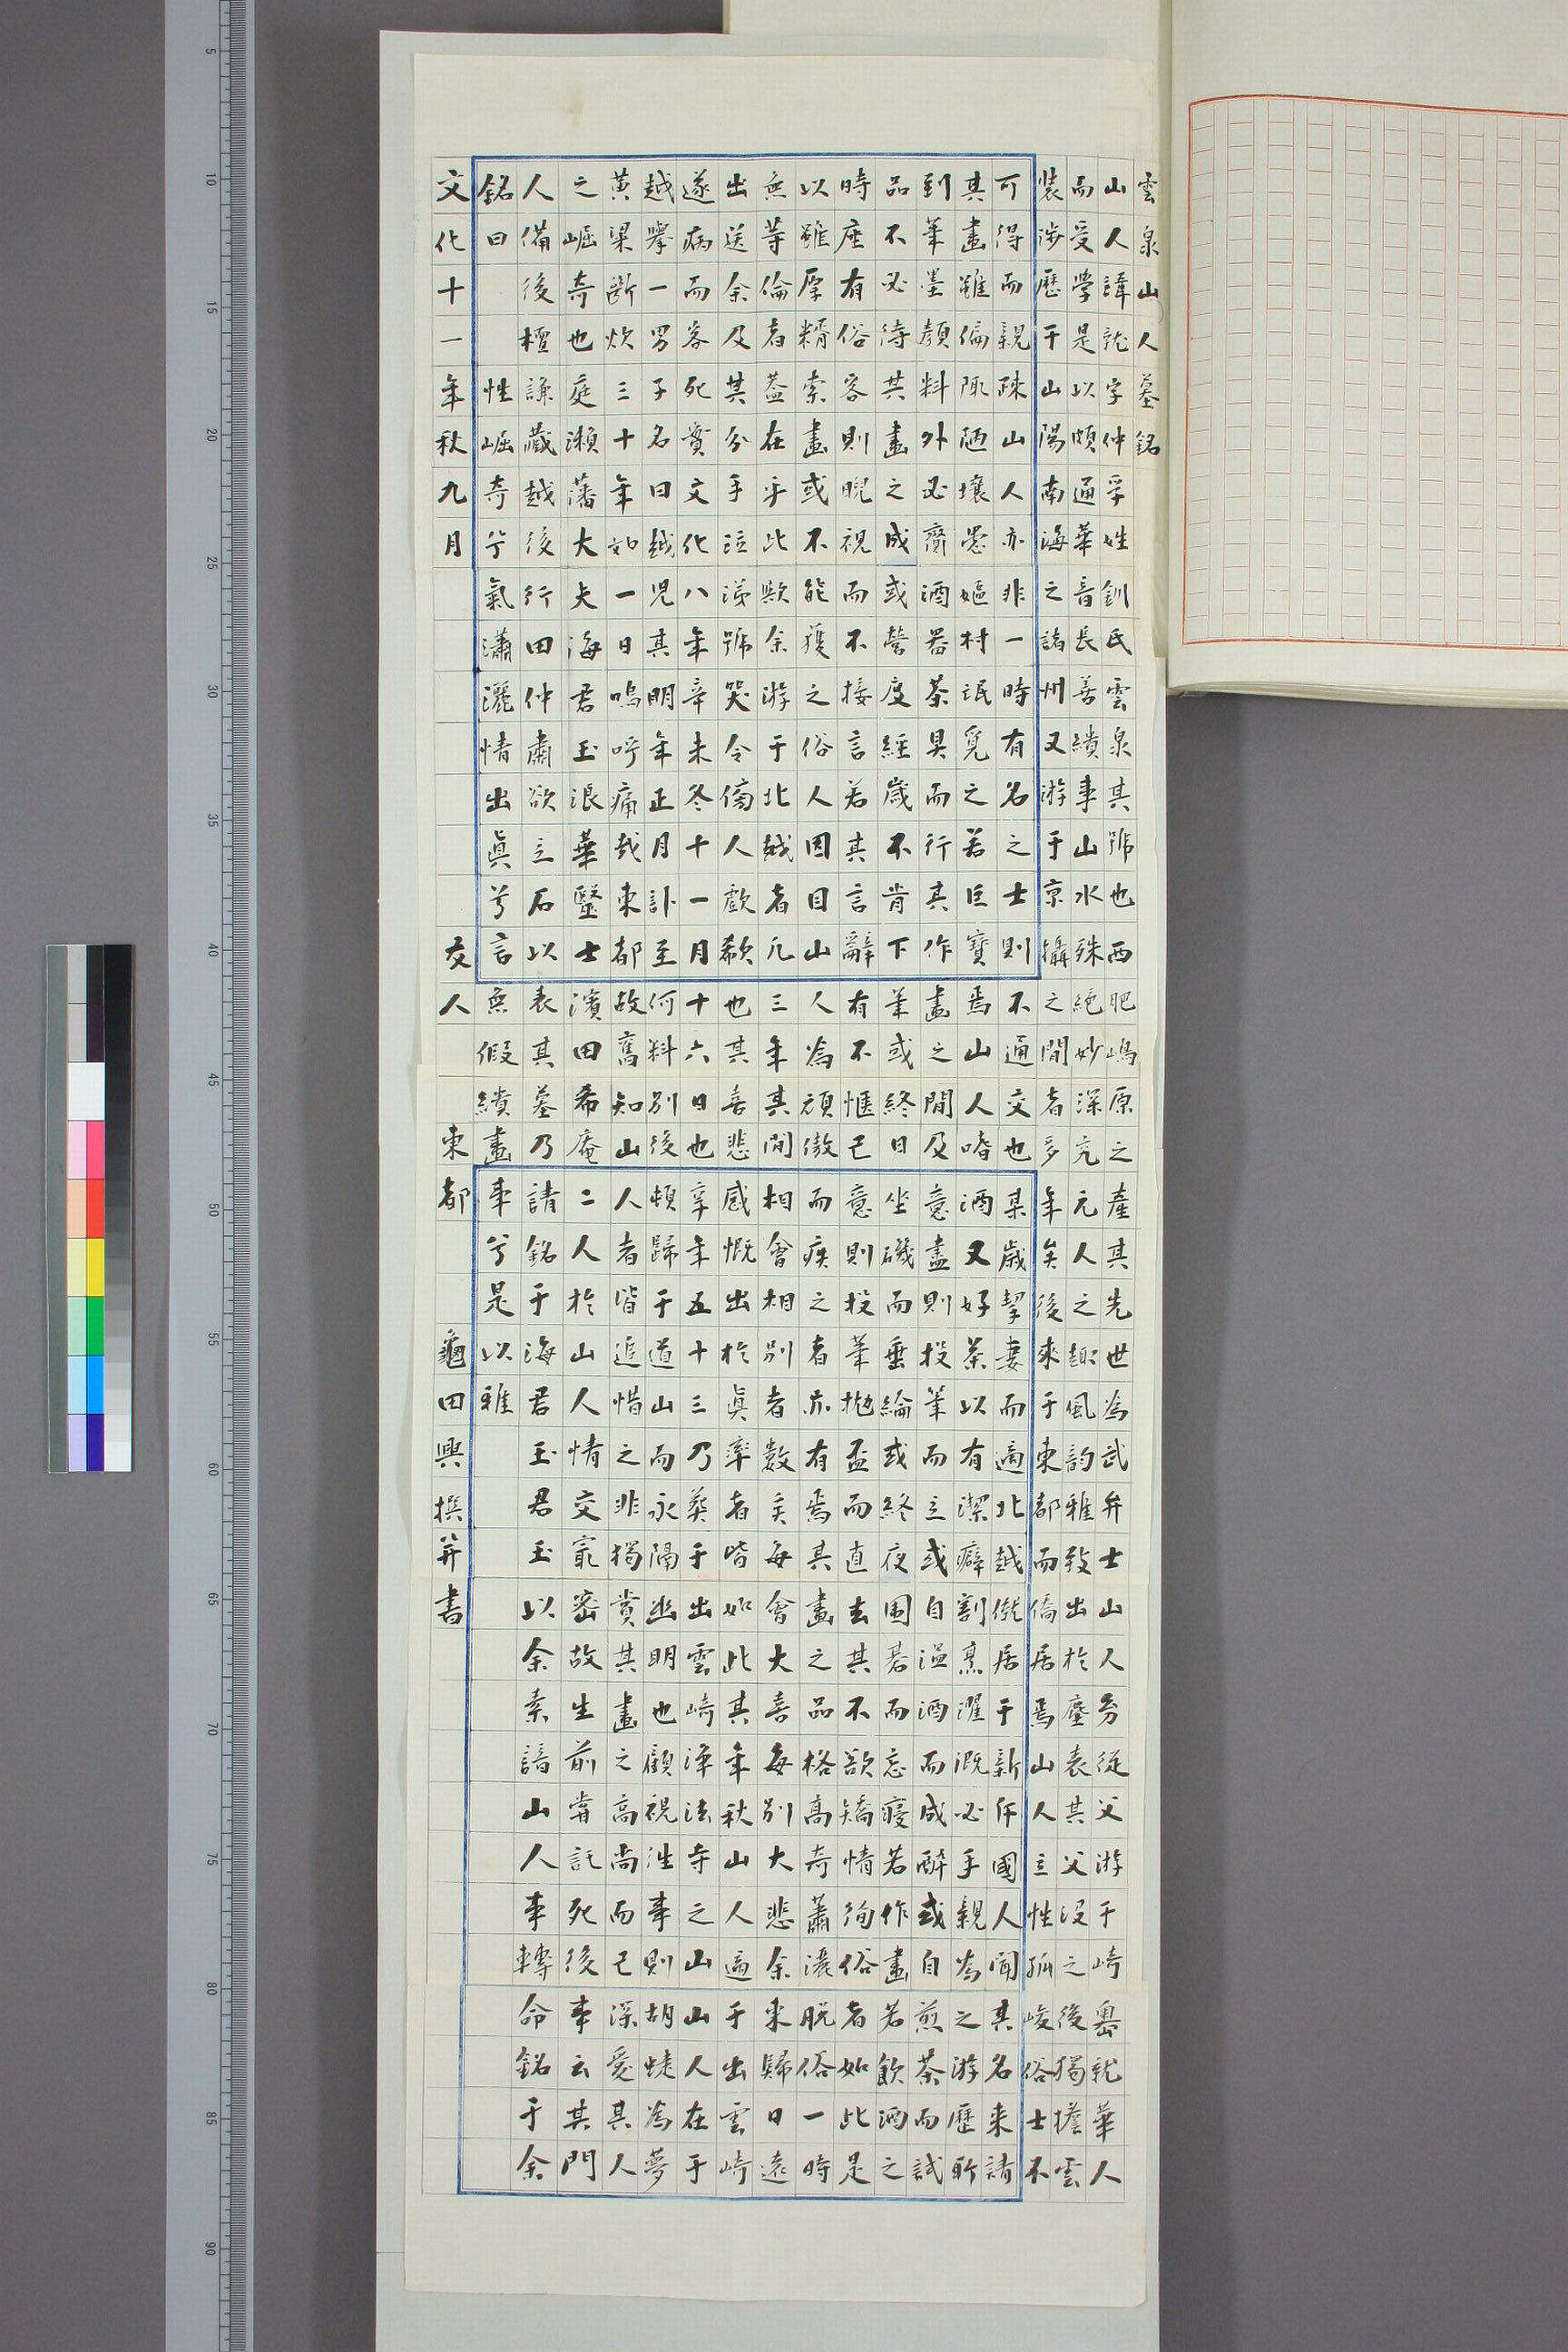 雲泉山人墓銘
山人諱就字仲孚姓釧氏雲泉其號也西肥嶋原之產其先世為武弁士山人㓜從父游于崎嶴就華人
而受學是以頗通華音長善繢事山水殊絶妙深充元人之趣風韵雅致出於塵表其父沒之後獨擔雲
裝涉歷于山陽南海之諸州又游于京攝之間者多年矣後來于東都而僑居焉山人立性孤峻俗士不
可得而親疎山人亦非一時有名之士則不通交也某歲挈妻而適北越僦居于新斥國人聞其名来請
其畫雖偏陬陋壤愚嫗村氓覓之若巨寶焉山人嗜酒又好茶以有潔癖割烹濯溉必手親為之游歷所
到筆墨顏料外必齎酒器茶具而行其作畫之間及意盡則投筆而立或自温酒而成酔或自煎茶而試
品不必待其畫之成或營度經歲不肯下筆或終日坐磯而垂綸或終夜圍碁而忘寢若作畫若飲酒之
時座有俗客則睨視而不接言若其言辭有不愜己意則投筆抛盃而直去其不欲矯情徇俗者如此是
以雖厚糈索畫或不能獲之俗人因目山人為頑傲而疾之者亦有焉其畫之品格高奇蕭灑脫俗一時
無等倫者蓋在乎此歟余游于北越者凡三年其間相會相別者数矣每會大喜每別大悲余来歸日遠
出送余及其分手泣涕號哭令傍人歔欷也其喜悲感慨出於眞率者皆如此其年秋山人適于出雲崎
遂病而客死實文化八年辛未冬十一月十六日也享年五十三乃葬于出雲崎淨法寺之山山人在于
越擧一男子名曰越児其明年正月訃至何料別後頓歸于道山而永隔幽明也顧視往事則胡蜨為夢
黄梁斷炊三十年如一日嗚呼痛哉東都故舊知山人者皆追惜之非獨賞其畫之高尚而已深愛其人
之崛奇也庭瀬藩大夫海君玉浪華醫士濱田希庵二人於山人情交㝡密故生前嘗託死後事云其門
人備後檀謙藏越後行田仲肅欲立石以表其墓乃請銘于海君玉君玉以余素諳山人事轉命銘于余
銘曰 性崛奇兮氣瀟灑情出眞兮言無假繢畫事兮是以雅
文化十一年秋九月 友人 東都 龜田興撰并書